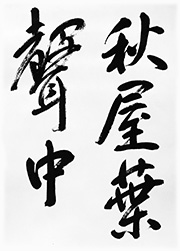 秋屋葉
聲中